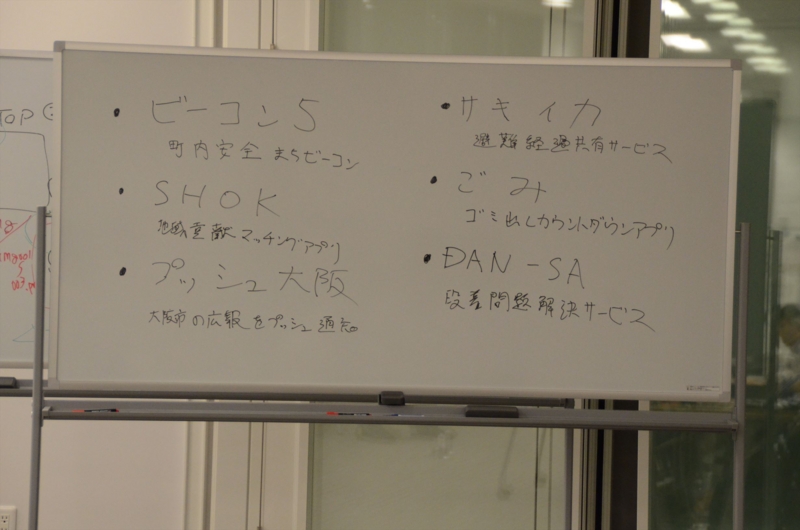 ・ビーコン5
町内安全 まちビーコン
・SHOK
地域貢献マッチングアプリ
・プッシュ大阪
大阪市の広報をプッシュ通知
・サキイカ
避難経過共有サービス
・ごみ
ゴミ出しカウントダウンアプリ
・ĐAN-SA
段差問題解決サービス
TOP